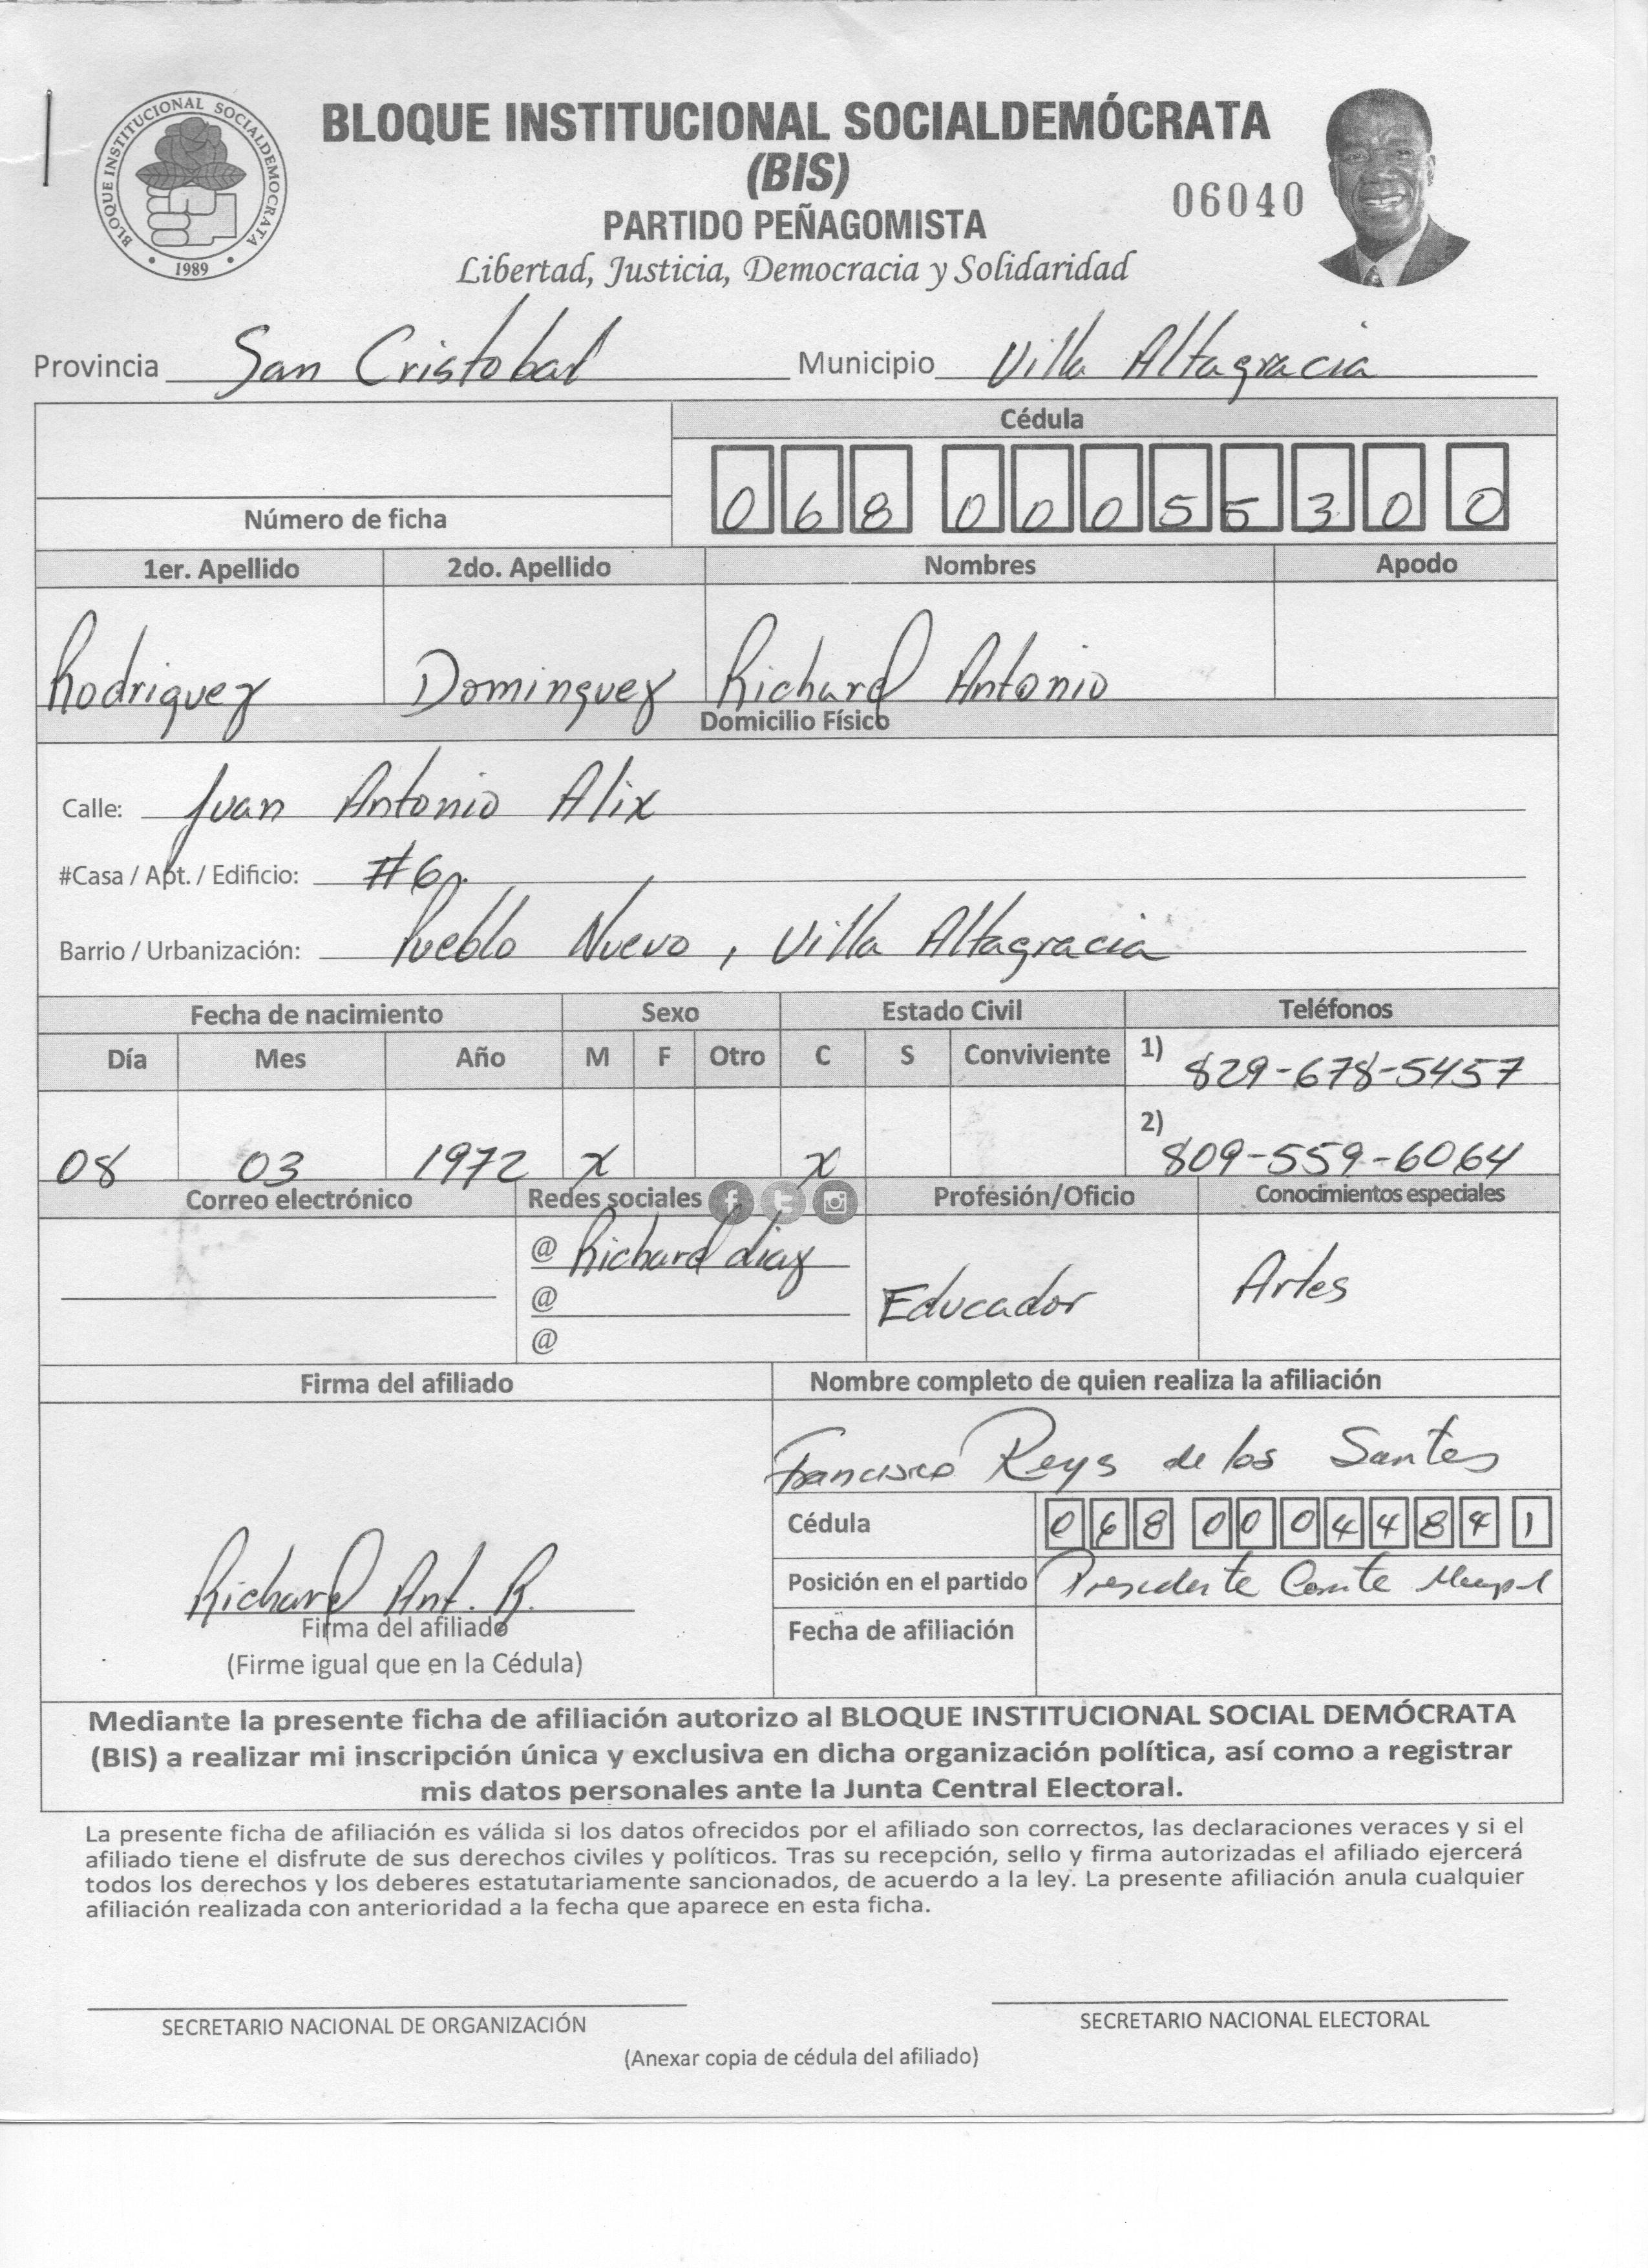 BLOQUE INSTITUCIONAL SOCIALDEMOCRATA
• 1989 •
BLOQUE INSTITUCIONAL SOCIALDEMÓCRATA
(BIS)
06040
PARTIDO PEÑAGOMISTA
Libertad, Justicia, Democracia y Solidaridad
Provincia San Cristobal Municipio Villa Altagracia
Cédula
0 6 8 0 0 0 5 5 3 0 0
Número de ficha
1er. Apellido 2do. Apellido Nombres Apodo
Rodriguez Dominguez Richard Antonio
Domicilio Físico
Calle: Juan Antonio Alix
#Casa / Apt. / Edificio: #6
Barrio / Urbanización: Pueblo Nuevo, Villa Altagracia
Fecha de nacimiento Sexo Estado Civil Teléfonos
Día Mes Año M F Otro C S Conviviente 1) 829-678-5457
08 03 1972 x x 2) 809-559-6064
Correo electrónico Redes sociales Profesión/Oficio Conocimientos especiales
@ Richard diaz
@ Educador Artes
@
Firma del afiliado Nombre completo de quien realiza la afiliación
Francisco Reys de los Santos
Cédula 0 6 8 0 0 0 4 4 8 4 1
Richard Ant. R. Posición en el partido Presidente Comite
Firma del afiliado Fecha de afiliación
(Firme igual que en la Cédula)
Mediante la presente ficha de afiliación autorizo al BLOQUE INSTITUCIONAL SOCIAL DEMÓCRATA
(BIS) a realizar mi inscripción única y exclusiva en dicha organización política, así como a registrar
mis datos personales ante la Junta Central Electoral.
La presente ficha de afiliación es válida si los datos ofrecidos por el afiliado son correctos, las declaraciones veraces y si el
afiliado tiene el disfrute de sus derechos civiles y políticos. Tras su recepción, sello y firma autorizadas el afiliado ejercerá
todos los derechos y los deberes estatutariamente sancionados, de acuerdo a la ley. La presente afiliación anula cualquier
afiliación realizada con anterioridad a la fecha que aparece en esta ficha.
SECRETARIO NACIONAL DE ORGANIZACIÓN SECRETARIO NACIONAL ELECTORAL
(Anexar copia de cédula del afiliado)